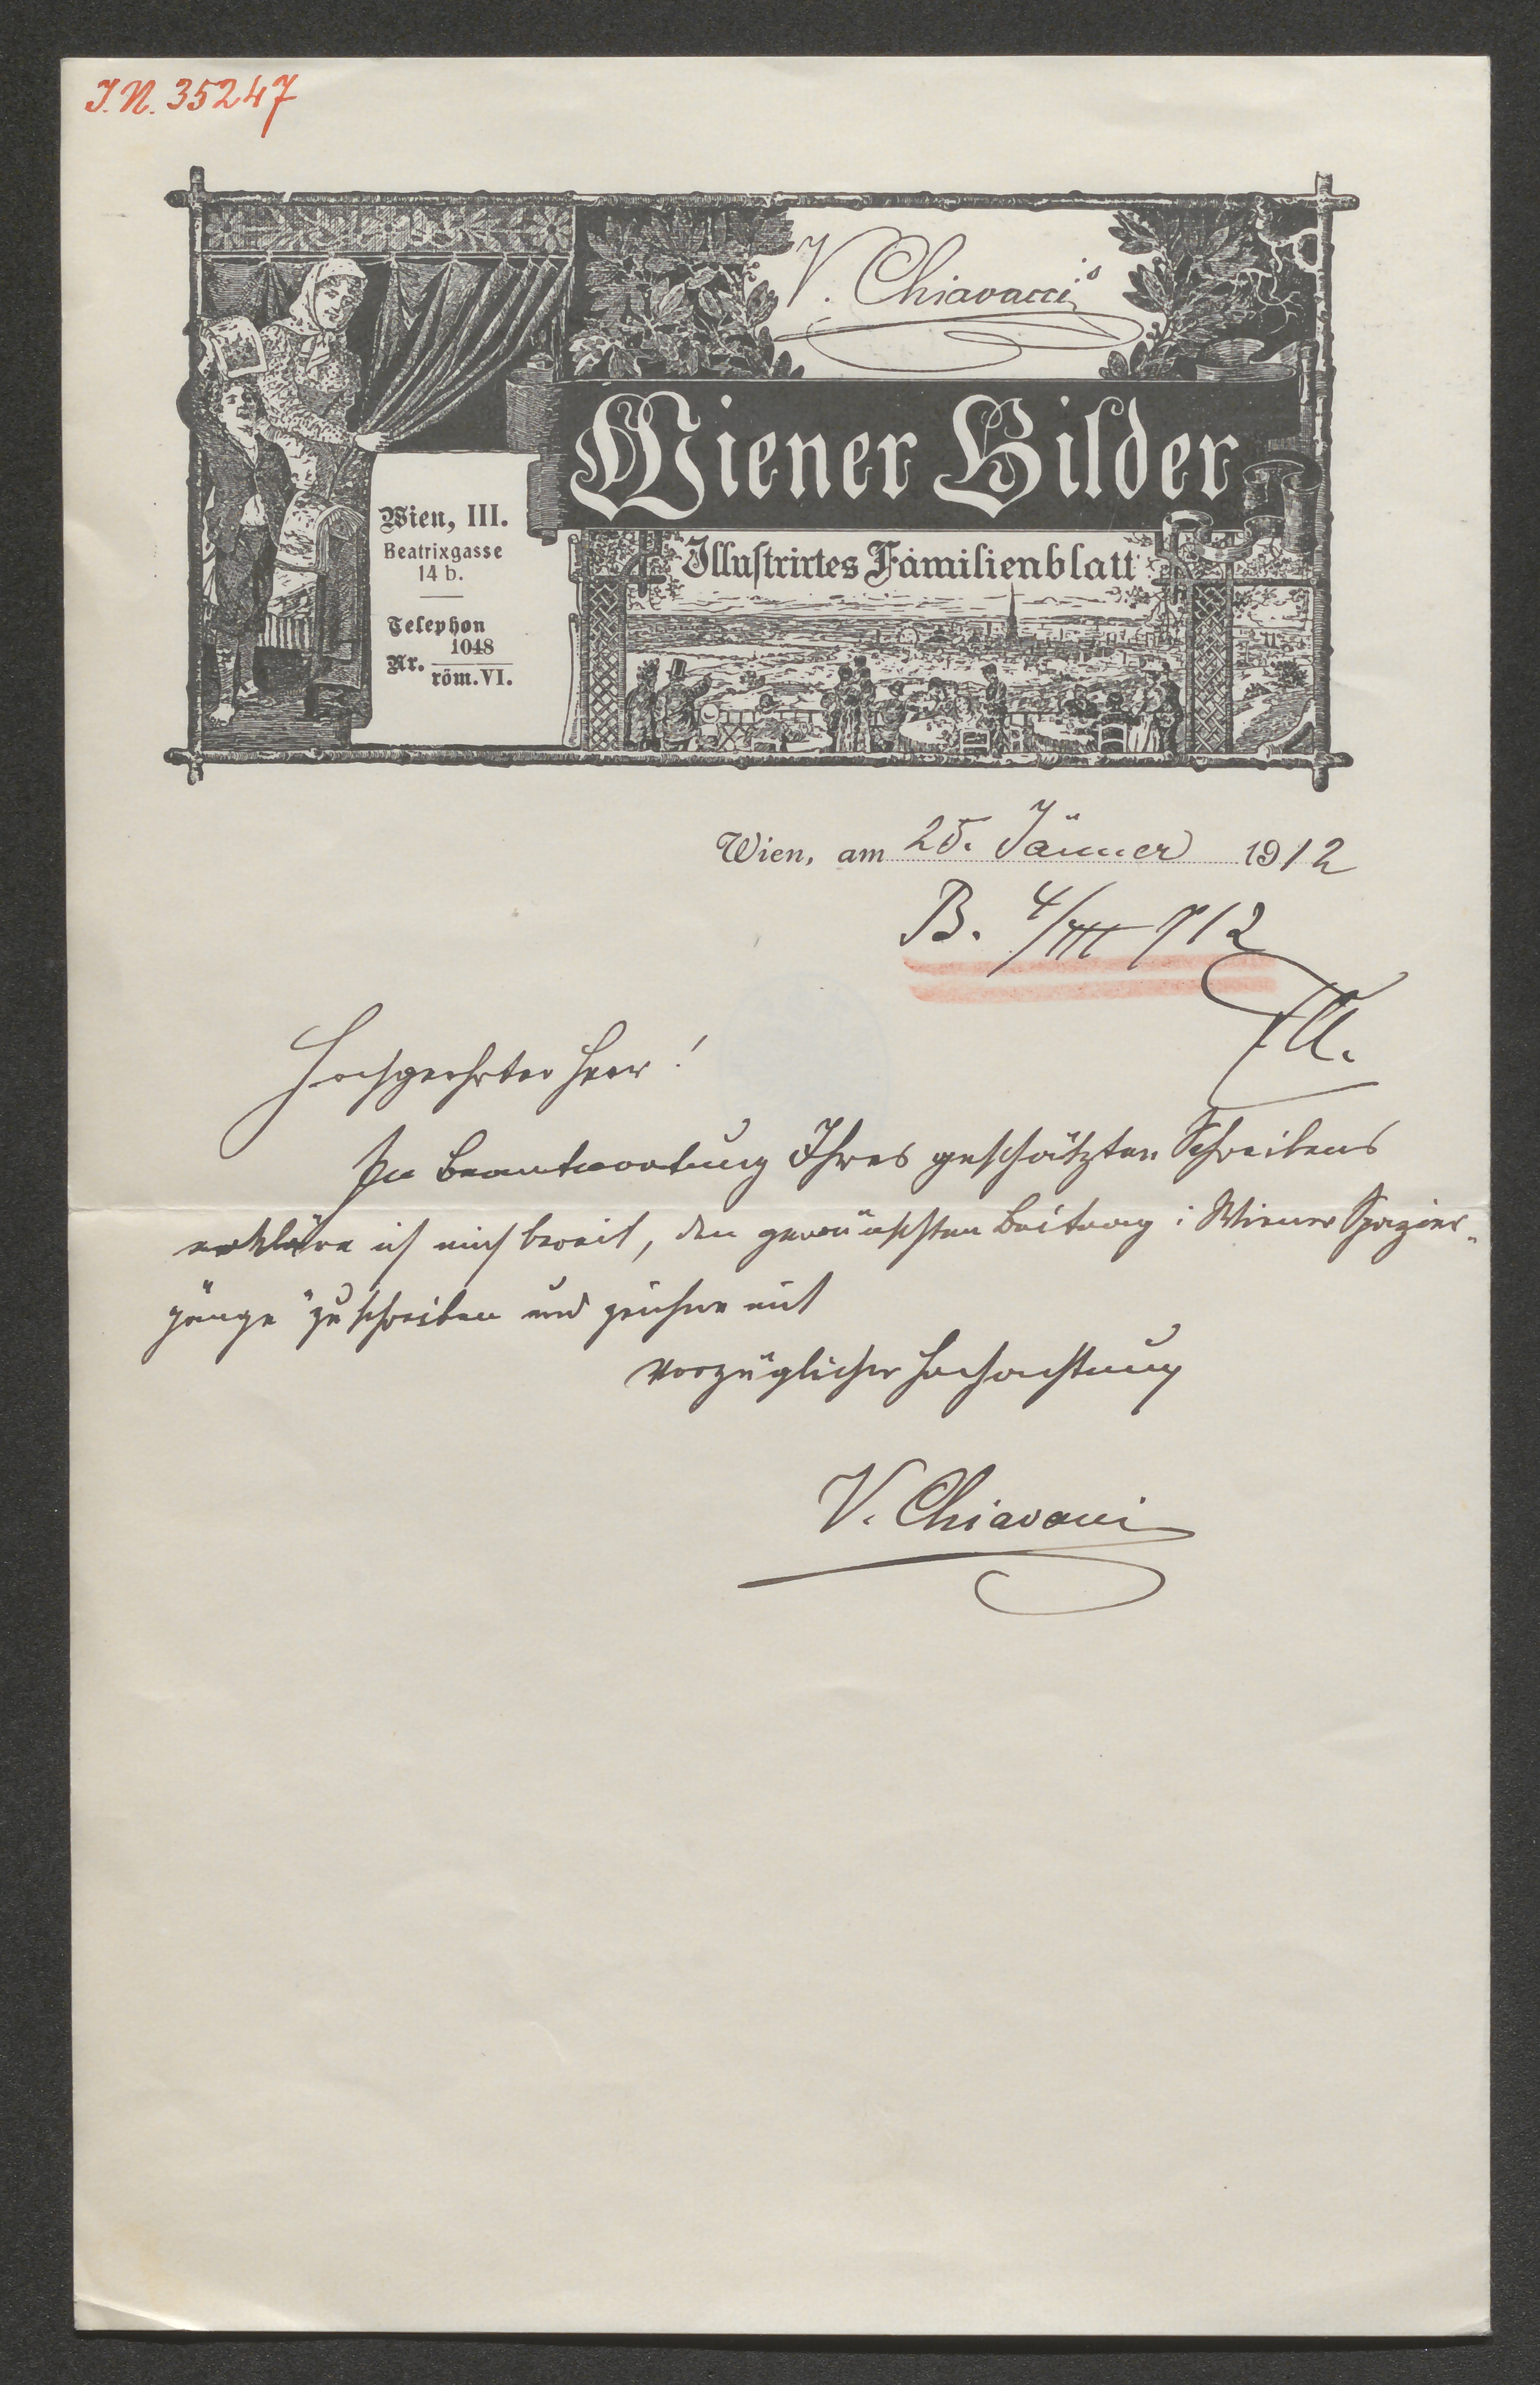 I.N. 35247
V. Chiavacci's
Wiener Bilder
Illustrirtes Familienblatt
Wien, III.
Beatrixgasse
14 b.
Telephon
Nr. 1048
röm. VI.
Wien, am 25. Jänner 1912
B. 4/III 912
Hochgeehrter Herr!
In Beantwortung Ihres geschätzten Schreibens
erkläre ich mich bereit, den gewünschten Beitrag: Wiener Spazier-
gänge" zu schreiben und zeichne mit
vorzüglicher Hochachtung
V. Chiavacci